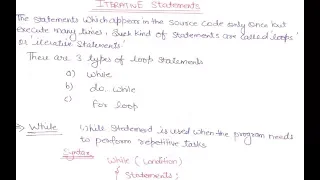 ITERATIVE Statements
The Statements which appears in the source code only once but
execute many times, such kind of statements are called 'loops'
or 'iterative statements'
There are 3 types of loop statements
a) while
b) do...while
c) for loop
→ While While statement is used when the program needs
to perform repetitive tasks
Syntax
while (condition)
{ statements;